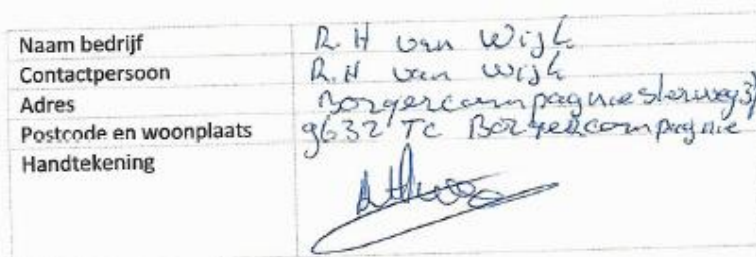 Naam bedrijf R.H van Wijk
Contactpersoon R.H van Wijk
Adres Borgercompagniesterweg
Postcode en woonplaats 9632 TC Borgercompagnie
Handtekening